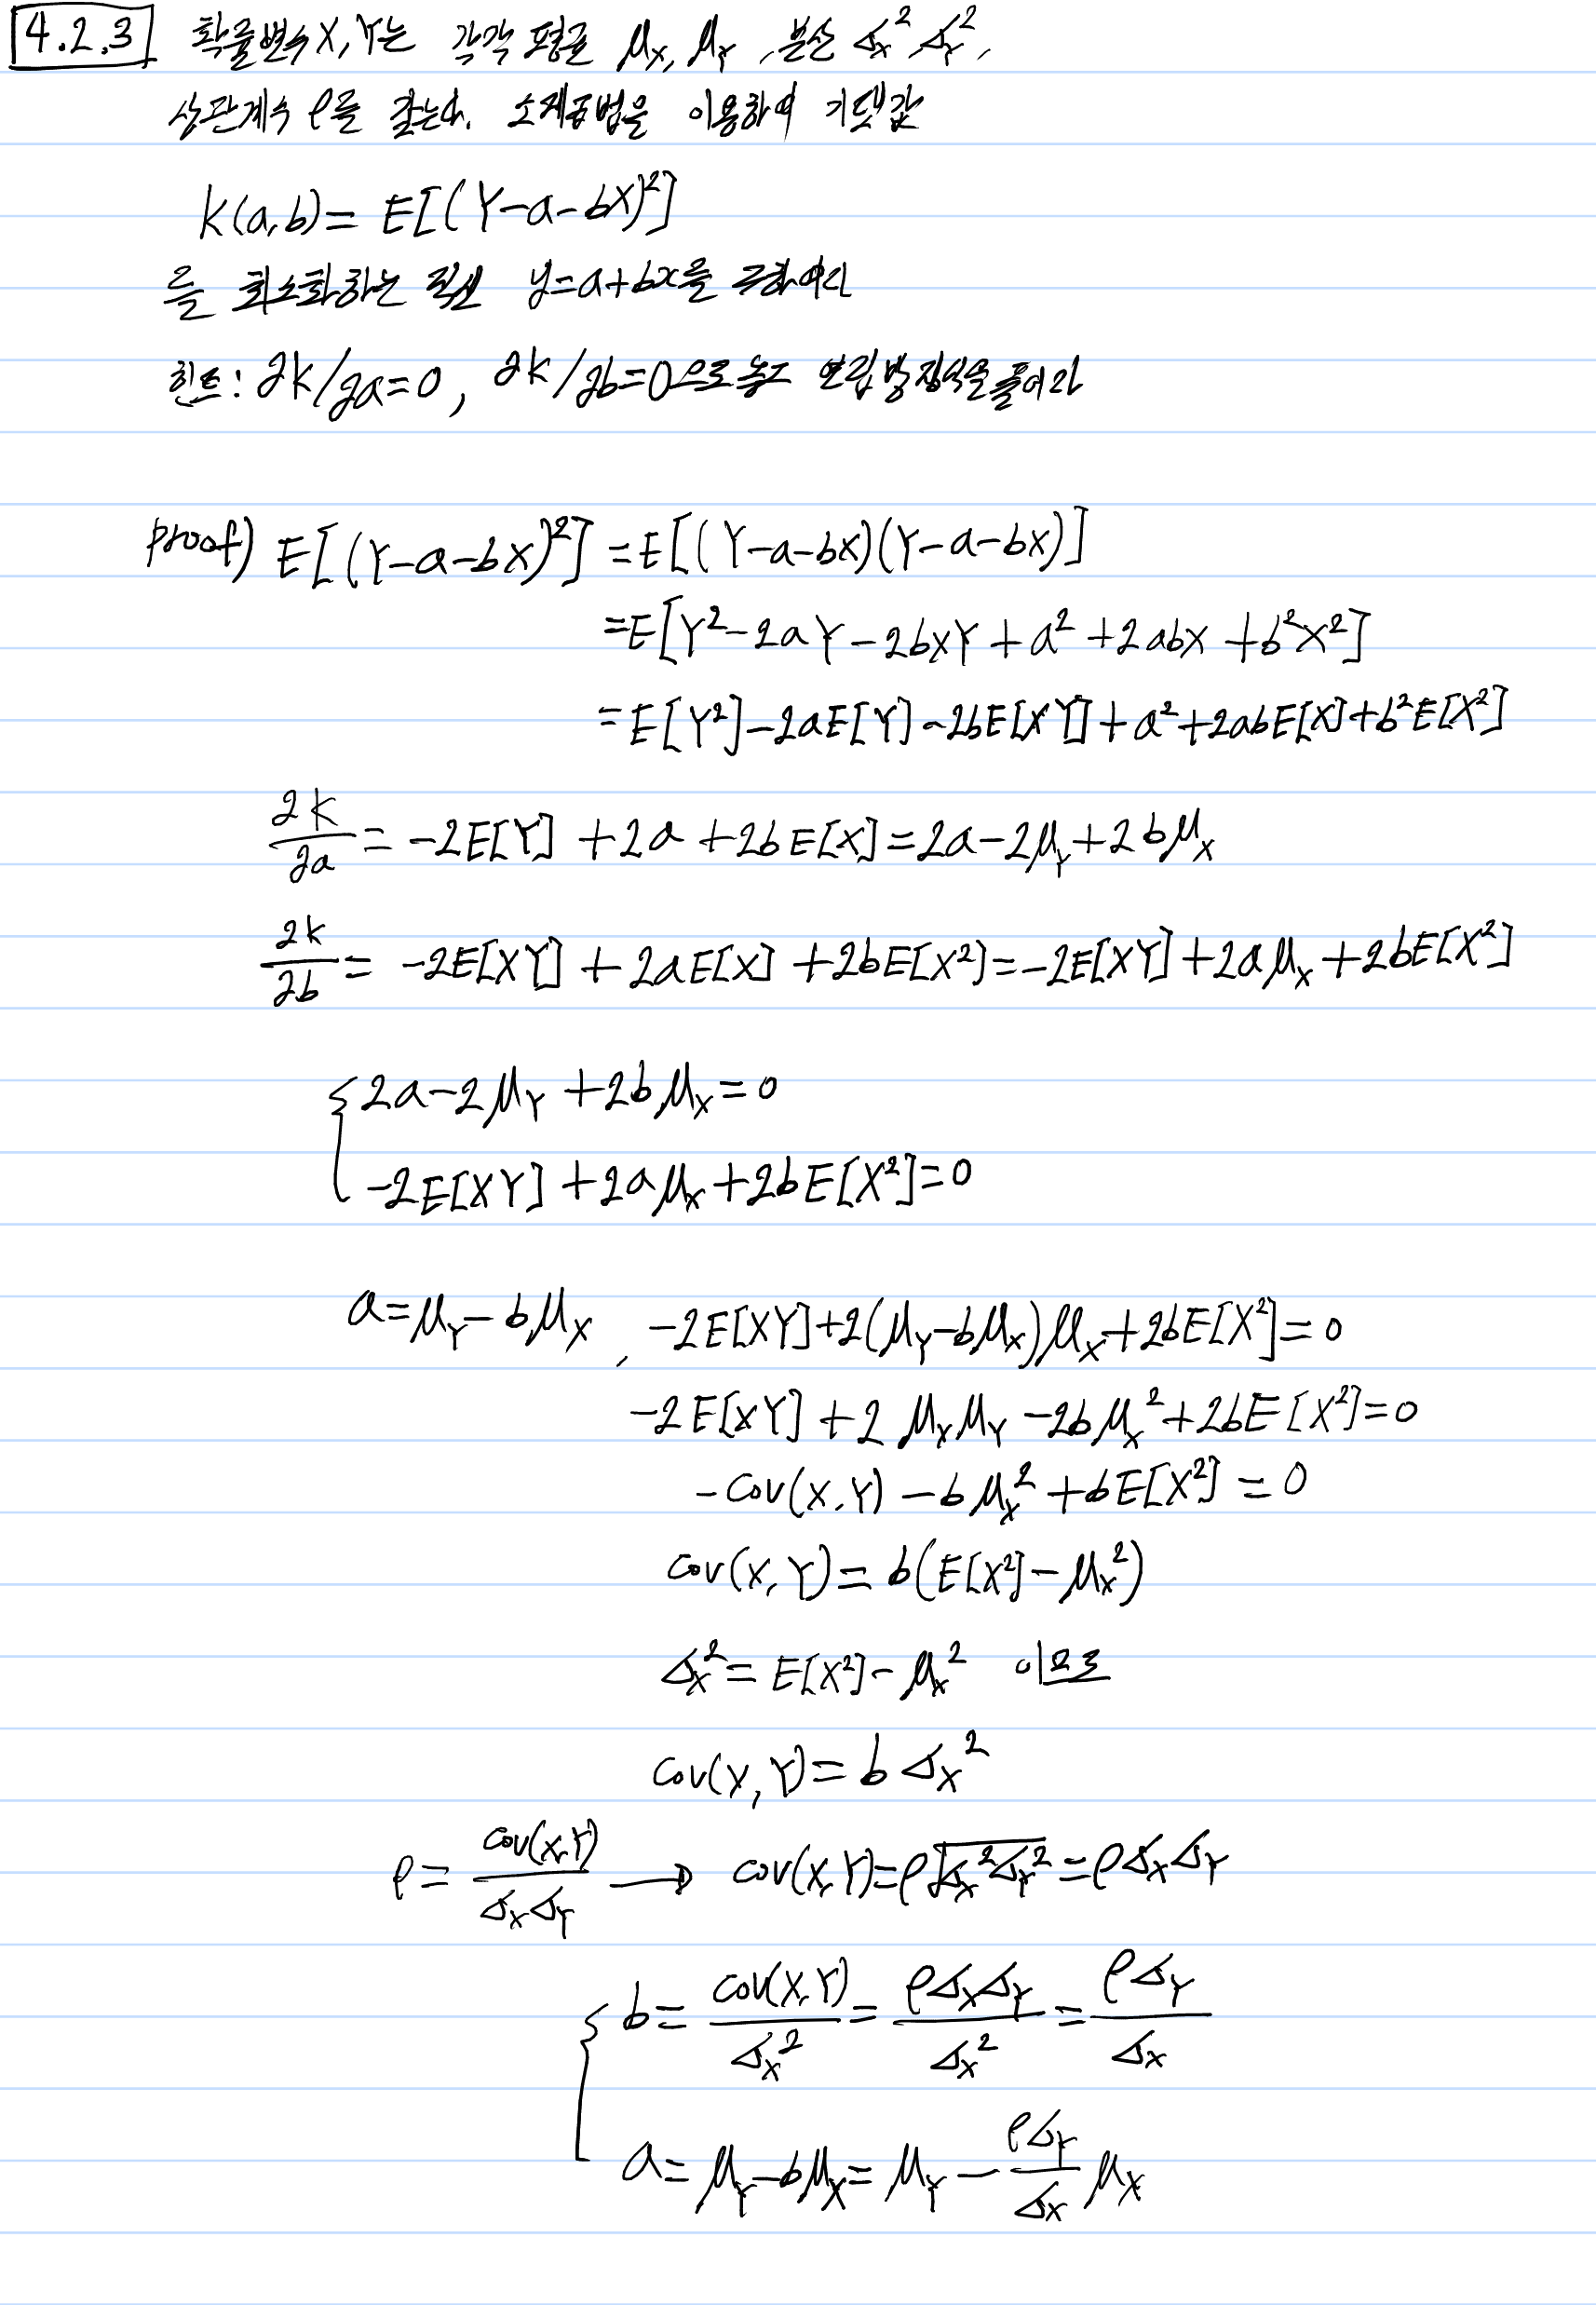 4.2.3 확률변수 X, Y는 각각 평균 μ_X, μ_Y, 분산 σ_X², σ_Y²,
상관계수 ρ를 갖는다. 소제곱법을 이용하여 기댓값
K(a,b) = E[(Y-a-bX)²]
를 최소화하는 직선 y=a+bx을 구하여라
힌트: ∂K/∂a=0, ∂K/∂b=0으로 놓고 연립방정식을 풀어라
proof) E[(Y-a-bX)²] = E[(Y-a-bX)(Y-a-bX)]
= E[Y²-2aY-2bXY+a²+2abX+b²X²]
= E[Y²]-2aE[Y]-2bE[XY]+a²+2abE[X]+b²E[X²]
∂K/∂a = -2E[Y]+2a+2bE[X] = 2a-2μ_Y+2bμ_X
∂K/∂b = -2E[XY]+2aE[X]+2bE[X²] = -2E[XY]+2aμ_X+2bE[X²]
{ 2a-2μ_Y+2bμ_X=0
-2E[XY]+2aμ_X+2bE[X²]=0
a=μ_Y-bμ_X, -2E[XY]+2(μ_Y-bμ_X)μ_X+2bE[X²]=0
-2E[XY]+2μ_Xμ_Y-2bμ_X²+2bE[X²]=0
-Cov(X,Y)-bμ_X²+bE[X²]=0
Cov(X,Y)=b(E[X²]-μ_X²)
σ_X²=E[X²]-μ_X² 이므로
Cov(X,Y)=bσ_X²
ρ = Cov(X,Y)/σ_Xσ_Y → Cov(X,Y)=ρ√σ_X²σ_Y²=ρσ_Xσ_Y
{ b = Cov(X,Y)/σ_X² = ρσ_Xσ_Y/σ_X² = ρσ_Y/σ_X
a = μ_Y-bμ_X = μ_Y - ρσ_Y/σ_X μ_X